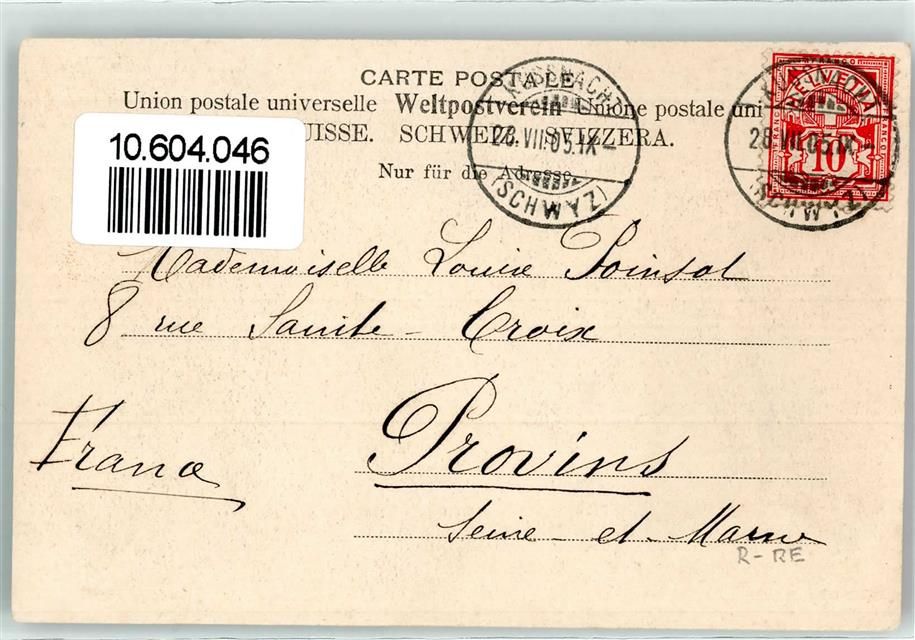 CARTE POSTALE
Union postale universelle Weltpostverein Unione postale uni
UISSE. SCHWEIZ. SVIZZERA.
Nur für die Adresse
10.604.046
KÜSSNACHT
28.VII.05.IX–
(SCHWYZ)
28.VII.05.IX–
HELVETIA
FRANCO
FRANCO
10
Mademoiselle Louise Poinsot
8 rue Sainte-Croix
Provins
France
Seine-et-Marne
R-RE